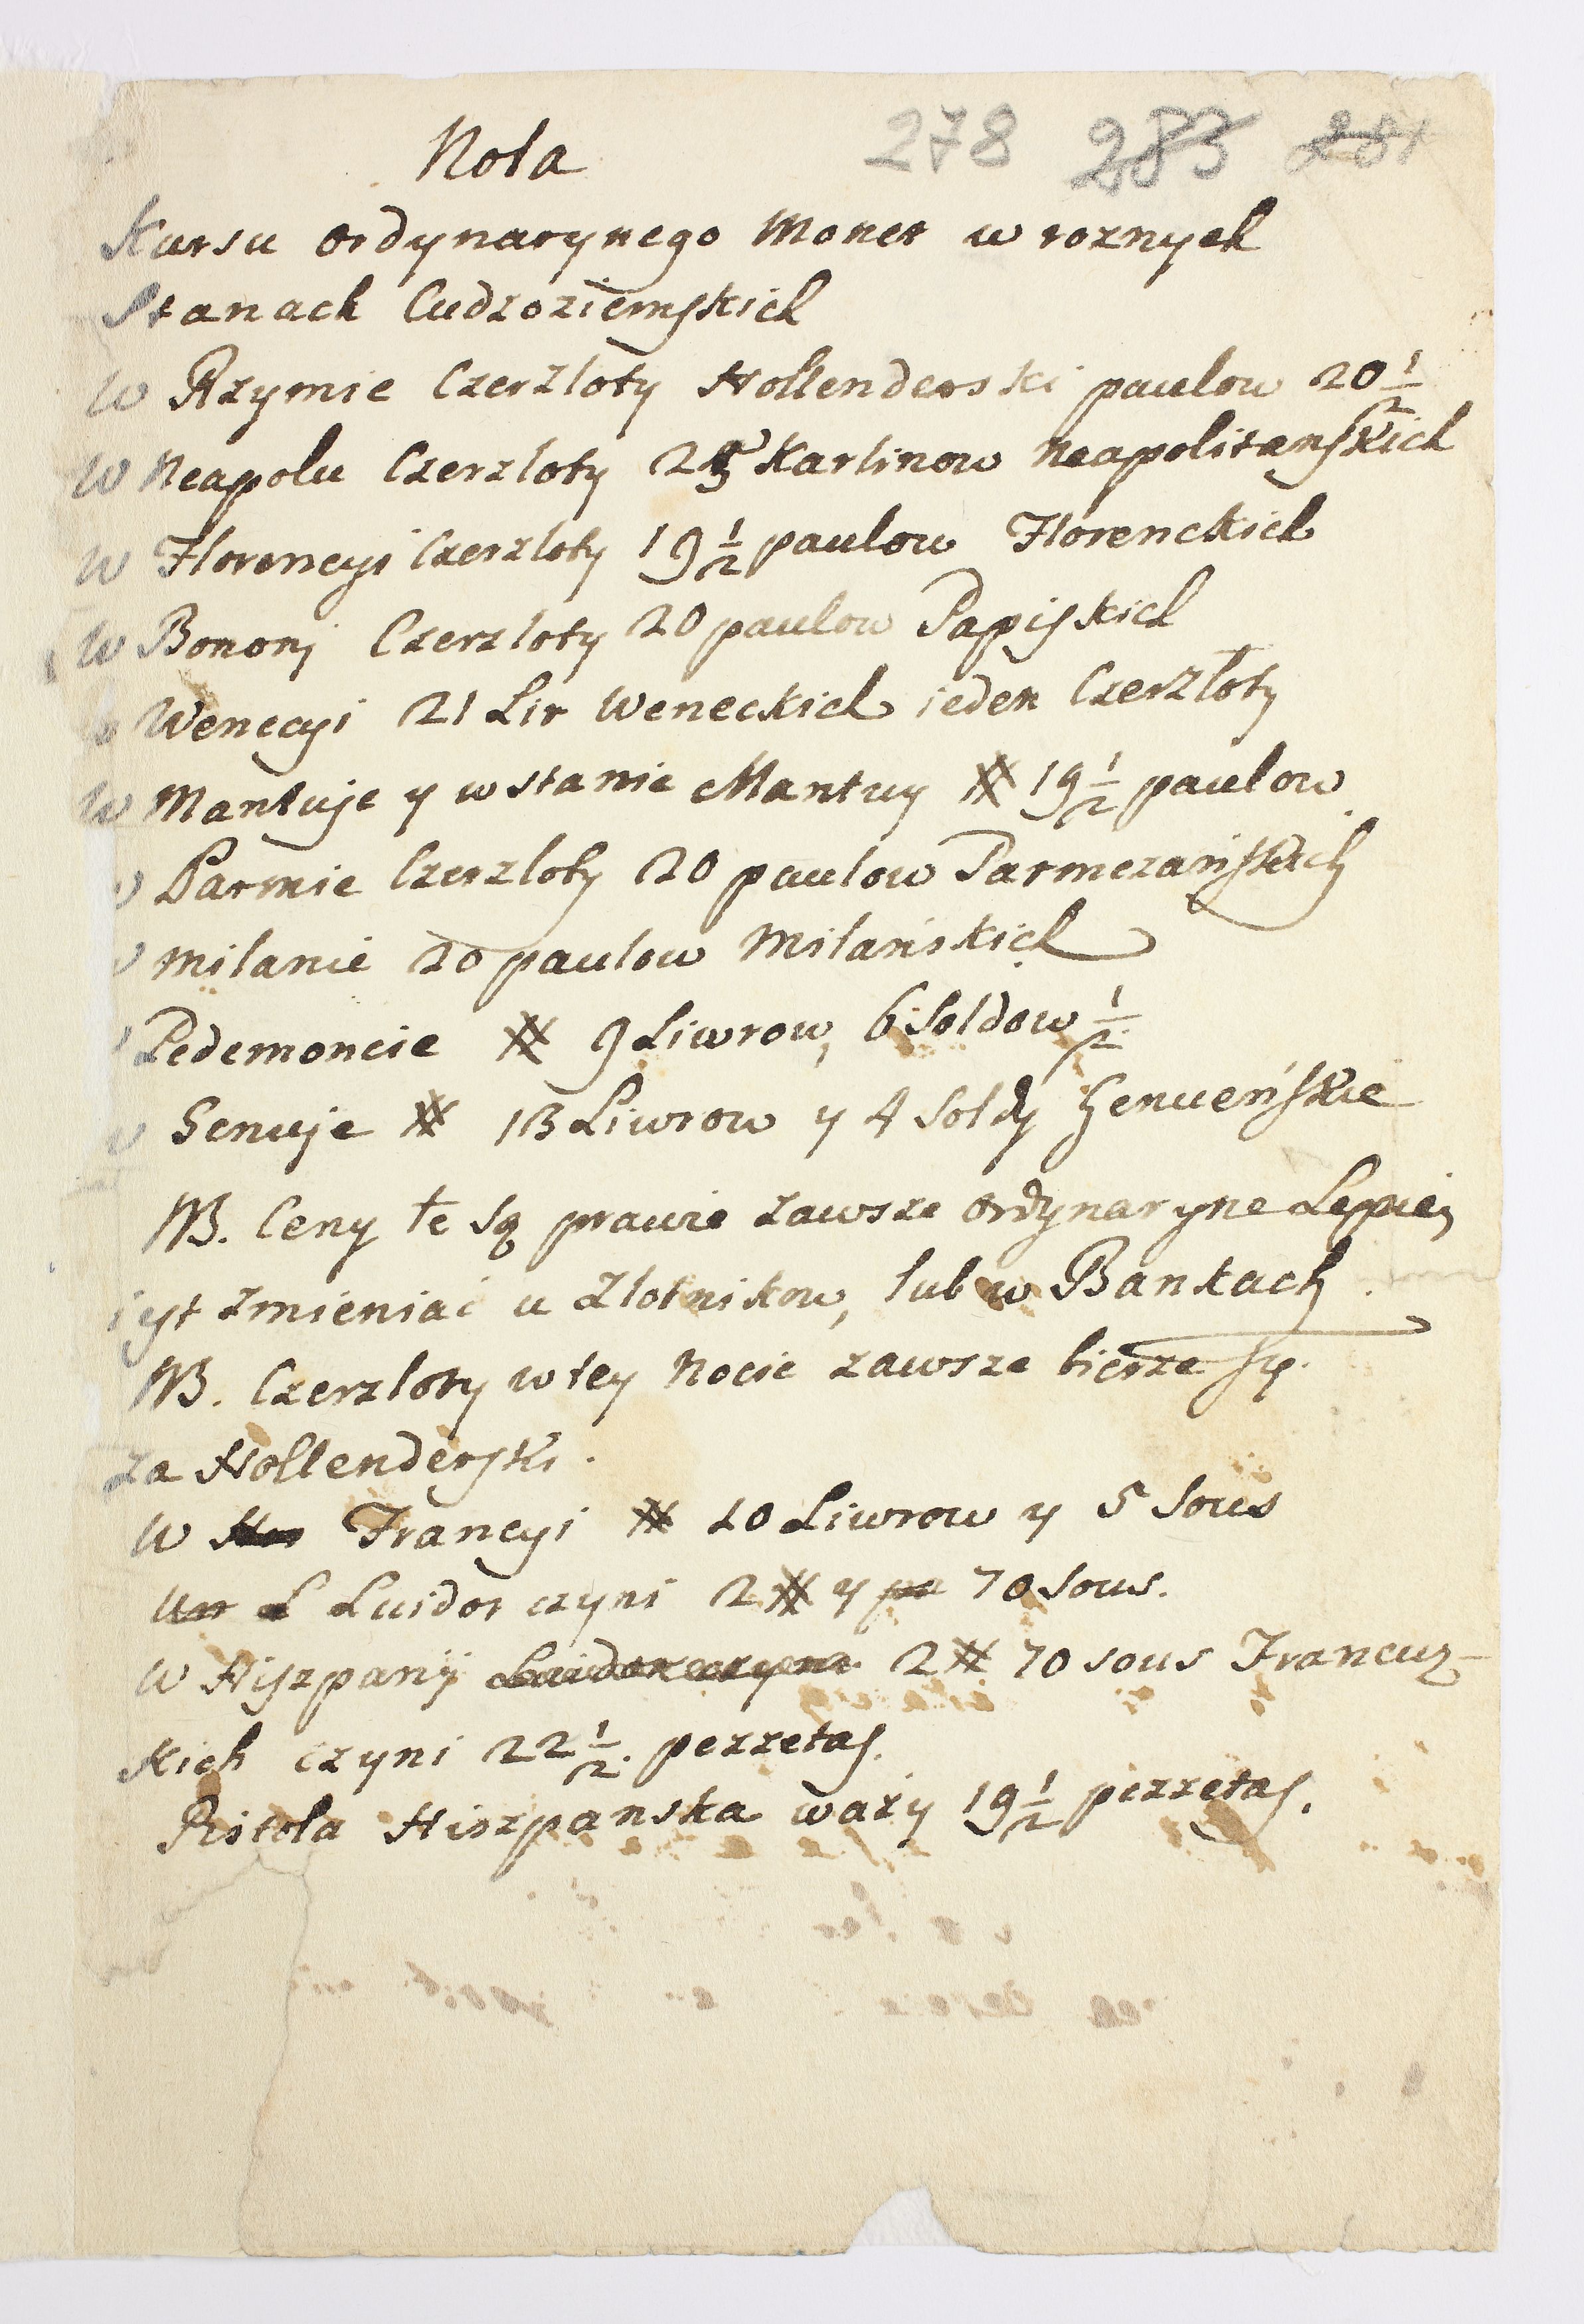 278 283 281
Nota
Kursu ordynarynego Monet w roznych
Stanach Cudzoziemskich
W Rzymie Czerzloty Hollenderski paulow 20 1/2
W Neapolu Czerzloty 25 Karlinow Neapolitańskich
W Florencyi Czerzloty 19 1/2 paulow Florenckich
W Bononj Czerzloty 20 paulow Papiskich
W Wenecyi 21 Lir Weneckich ieden Czerzłoty
W Mantuje y w stanie Mantuy # 19 1/2 paulow
W Parmie Czerzloty 20 paulow Parmezańskich
W Milanie 20 paulow Milańskich
W Pedemoncie # 9 Liwrow, 6 Soldow 1/2
W Genuje # 13 Liwrow y 4 Soldy Genueńskie
NB. Ceny te są prawie zawsze ordynaryne Lepiej
iyt zmieniać u Zlotnikow, lub w Bankach.
NB. Czerzloty w tey Nocie zawsze bierze się.
za Hollenderski.
W Francyi # 10 Liwrow y 5 Sous
Luidor czyni 2 # y 70 Sous.
W Hiszpanij Luidor czyni 2 # 70 sous Francuz-
kich czyni 22 1/2. pezzetas.
Pistola Hiszpanska waży 19 1/2 pezzetas.